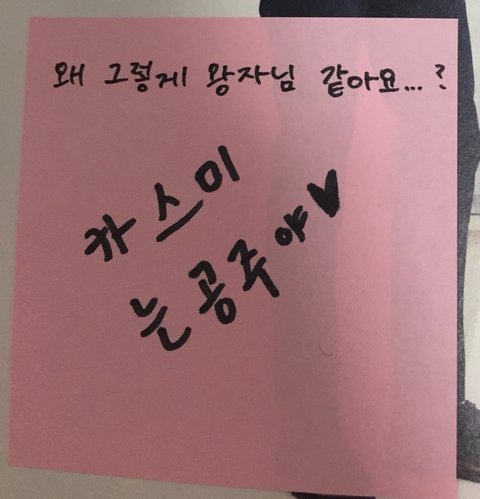 왜 그렇게 왕자님 같아요...?
카스미
는 공주야♥